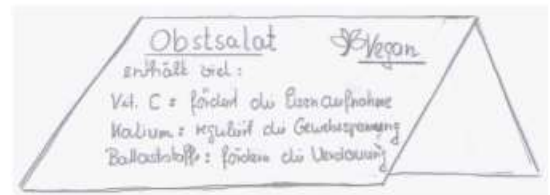 Obstsalat Vegan
enthält viel:
Vit. C: fördert die Eisenaufnahme
Kalium: reguliert die Gewebespannung
Ballaststoffe: fördern die Verdauung